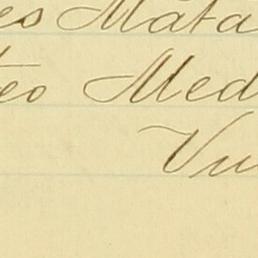 es Mata
eo Med
Vu